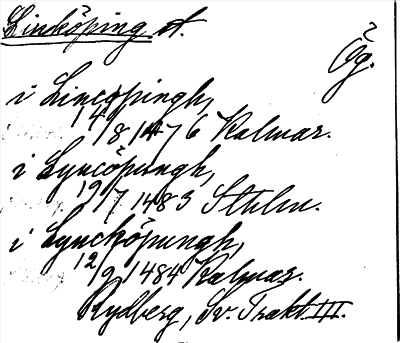 Linköping st.
Ög.
i Lincöpingh,
14/8 1476 Kalmar.
i Lyncöpungh,
19/7 1483 Sthlm.
i Lynchöpungh,
12/9 1484 Kalmar.
Rydberg, Sv. Trakt. III.